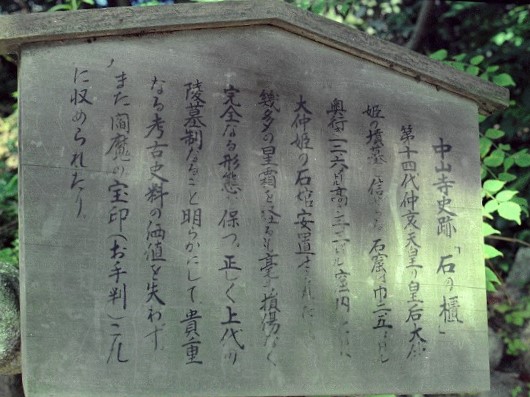 中山寺史跡「石の櫃」
第十四代仲哀天皇の皇后大仲
姫の墳墓と信 石窟は巾二.五
奥行 六 高三 室内
大仲姫の石棺安置
幾多の星霜を 毫 損傷なく
完全なる形態を保つ。正しく上代の
陵墓制なること明らかにして、貴重
なる考古史料の価値を失わず。
また閻魔の宝印(お手判)これ
に収められたり